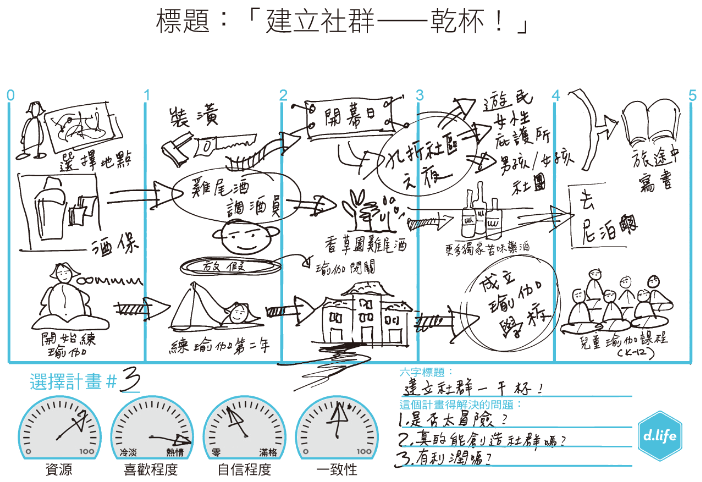 標題：「建立社群——乾杯！」
0 1 2 3 4 5
選擇地點
裝潢
開幕日
九折社區
之夜
遊民
女性
庇護所
男孩/女孩
社團
旅途中
寫書
酒保
雞尾酒
調酒員
放假
瑜伽閉關
香草園雞尾酒
更多獨家苦味藥酒
去
尼泊爾
開始練
瑜伽
練瑜伽第二年
成立
瑜伽
學校
兒童瑜伽課程
(K-12)
選擇計畫 # 3
0 100
資源
冷淡 熱情
喜歡程度
零 滿格
自信程度
0 100
一致性
六字標題：
建立社群－干杯！
這個計畫得解決的問題：
1.是否太冒險？
2.真的能創造社群嗎？
3.有利潤嗎？
d.life